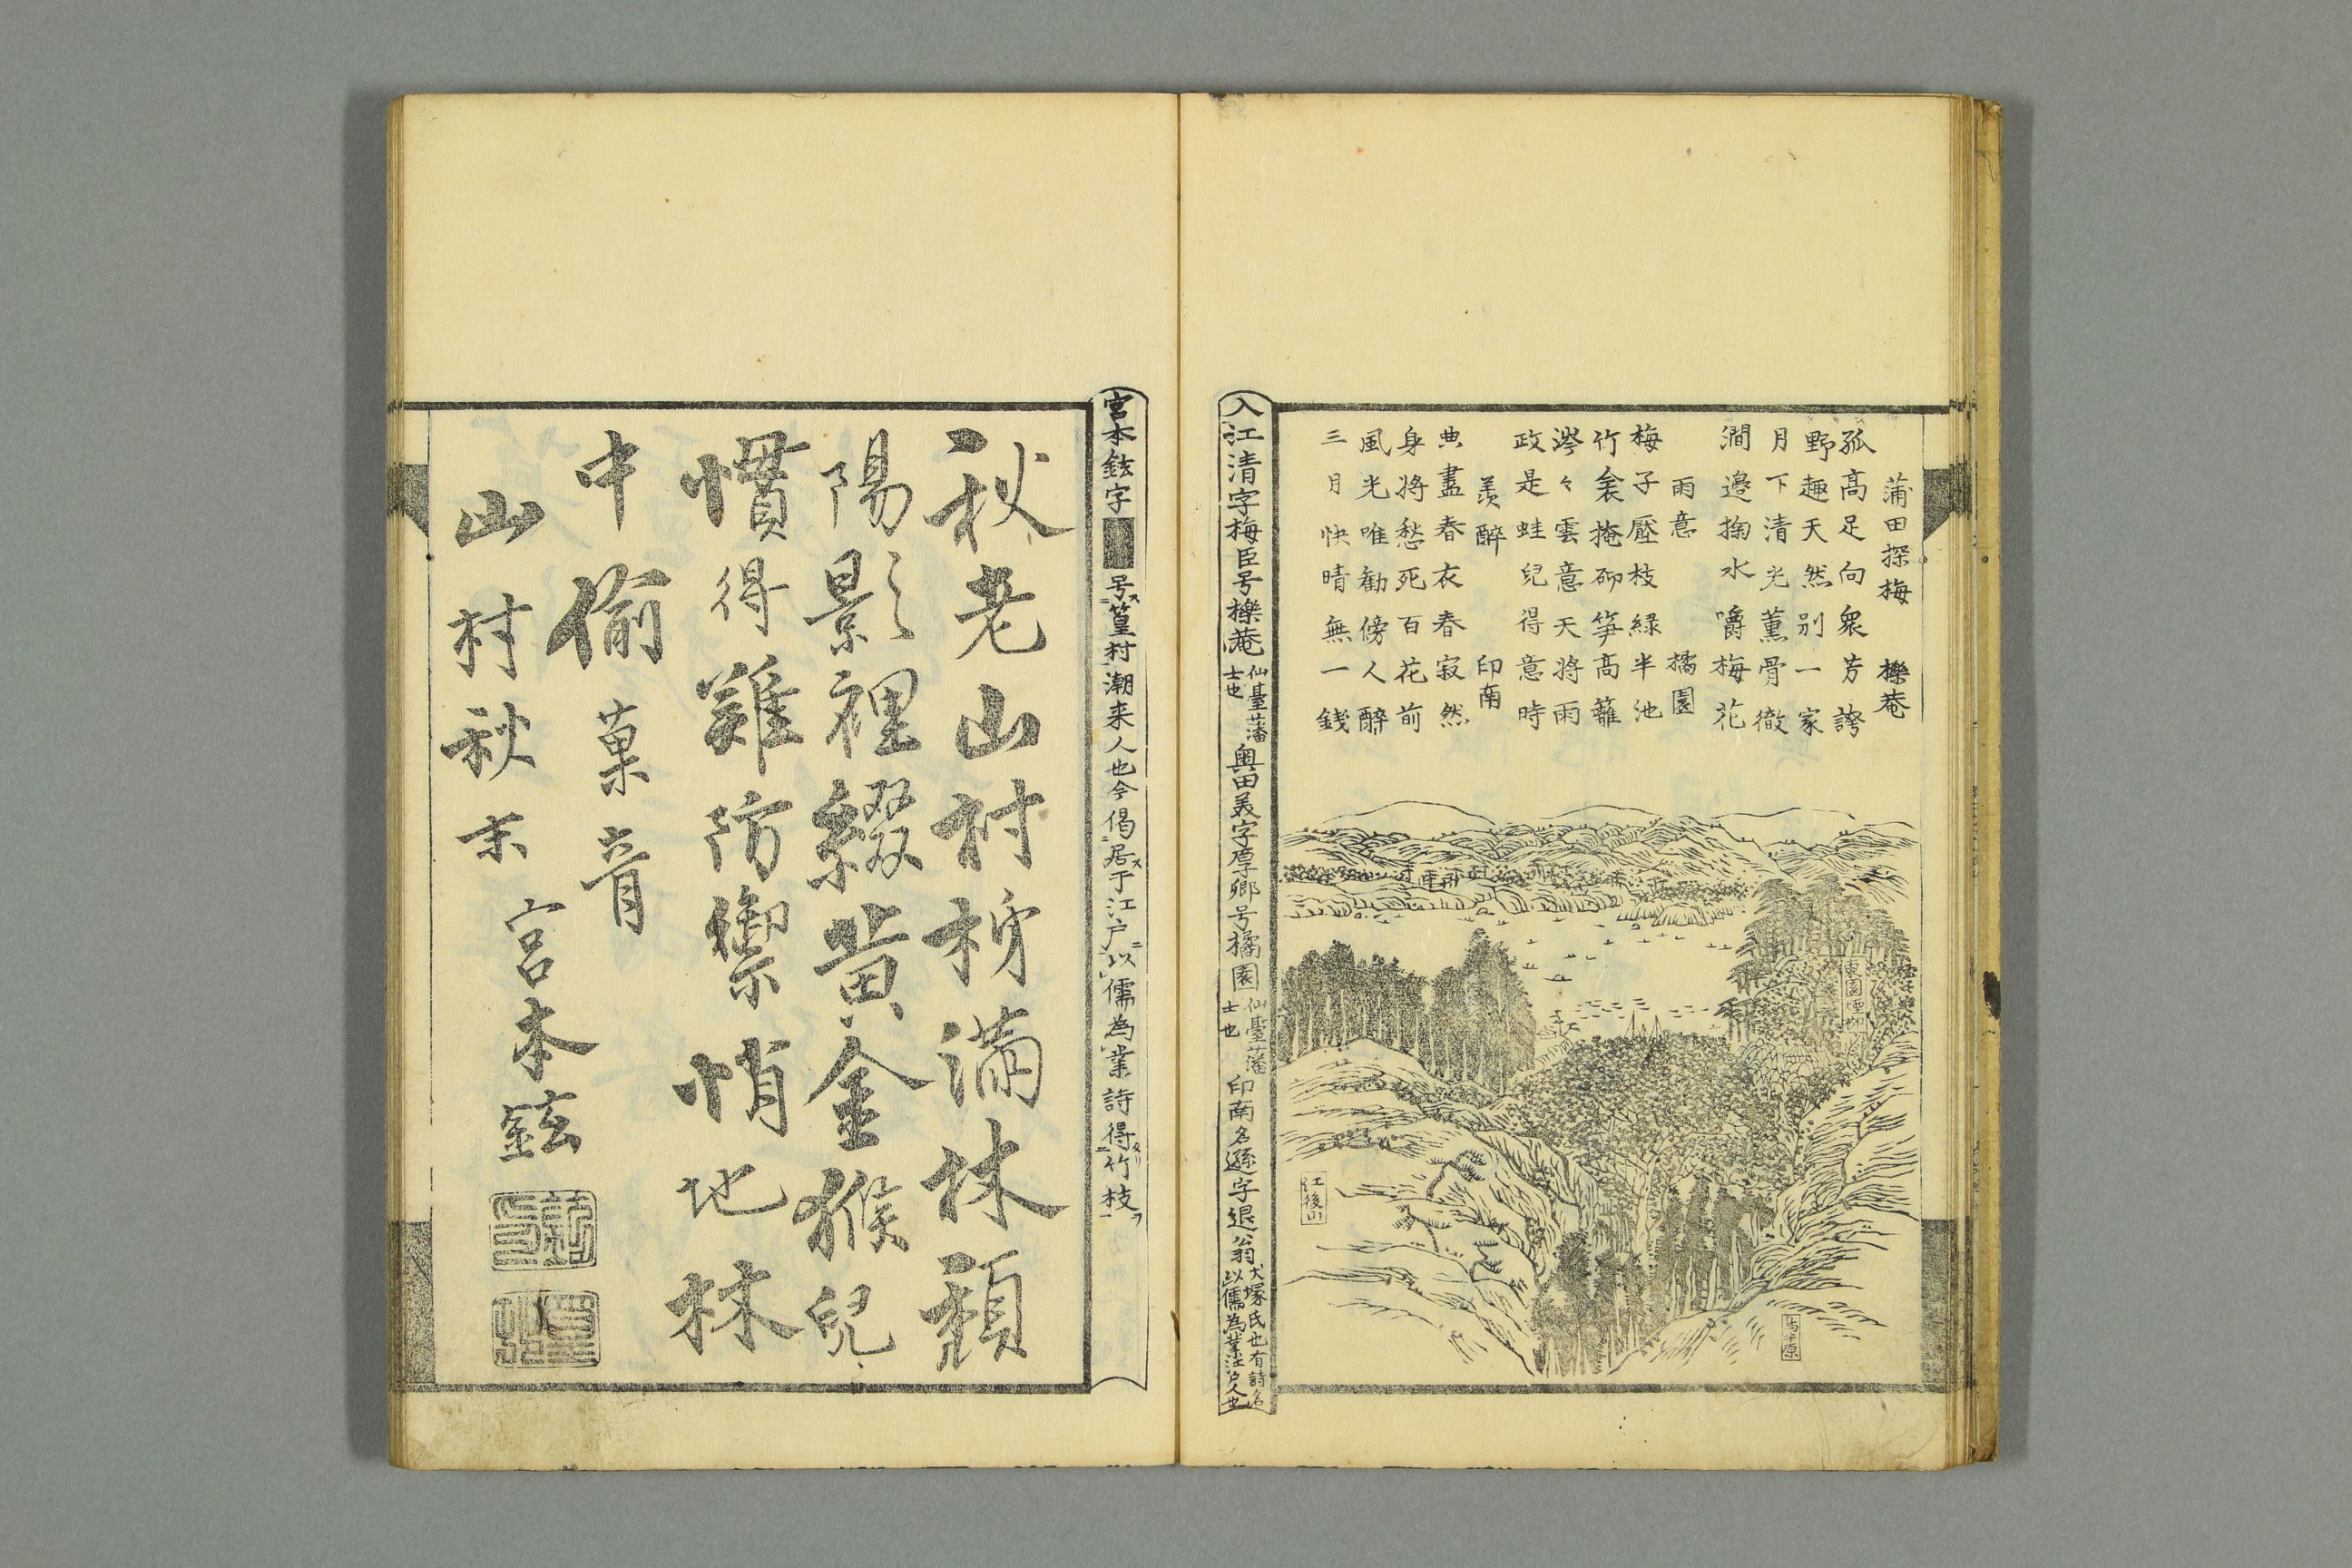 蒲田探梅　櫟菴
孤高足向衆芳誇
野趣天然別一家
月下清光薫骨徹
澗邉掬水嚼梅花
雨意　橘園
梅子壓枝緑半池
竹衾掩砌笋高籬
涔々雲意天將雨
政是蛙兒得意時
羨醉　印南
典盡春衣春寂然
身將愁死百花前
風光唯勧傍人醉
三月快晴無一銭
東園煙柳
江後山
入江清字梅臣号櫟菴仙臺藩士也奥田美字厚卿号橘園仙臺藩士也印南名遜字退翁犬塚氏也有詩名以儒為業江戸人也
宮本鉉字
号ス篁村潮来人也今偈居ス于江戸ニ以儒為業詩得タリ竹枝ヲ
秋老山村柿満林頽
陽影裡綴黄金猴兒
慣得難防禦悄地林
中偷菓音
山村秋末
宮本鉉